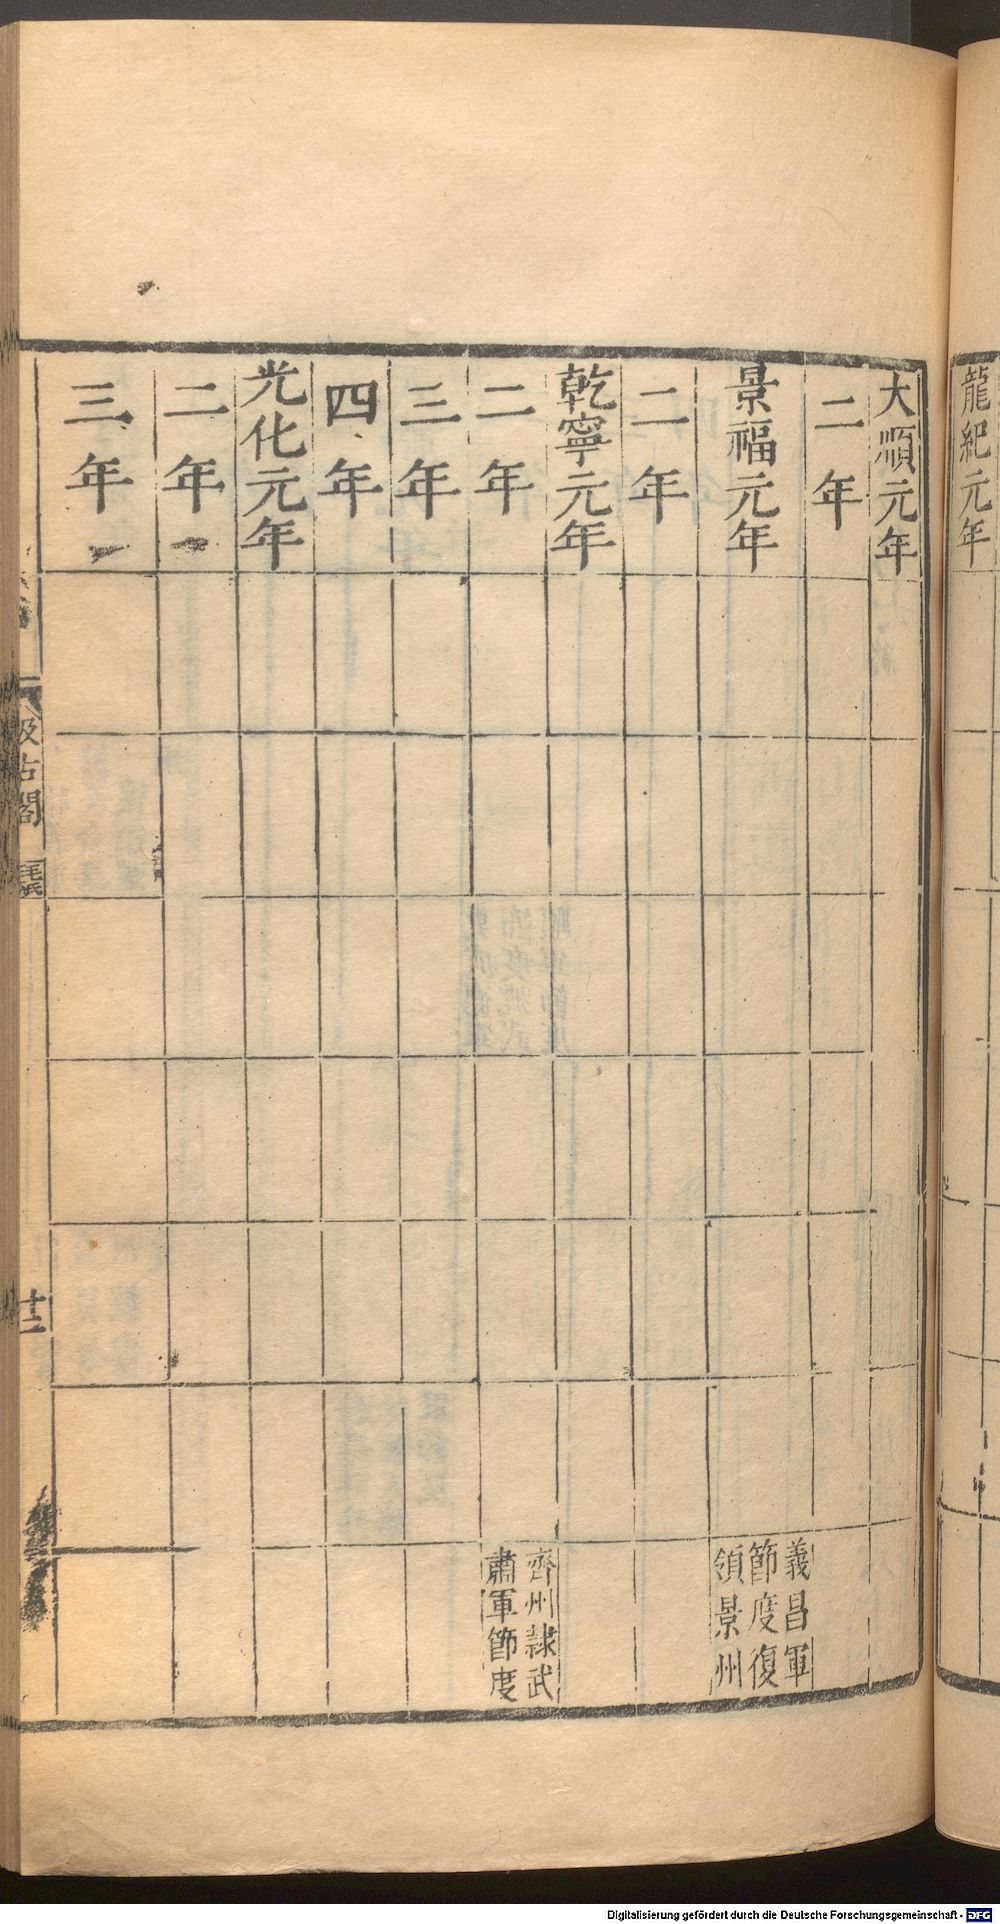 龍紀元年
大順元年
二年
景福元年
義昌軍
節度復
領景州
二年
乾寧元年
二年
齊州隷武
肅軍節度
三年
四年
光化元年
二年
三年
汲古閣
毛氏
Digitalisierung gefördert durch die Deutsche Forschungsgemeinschaft - DFG